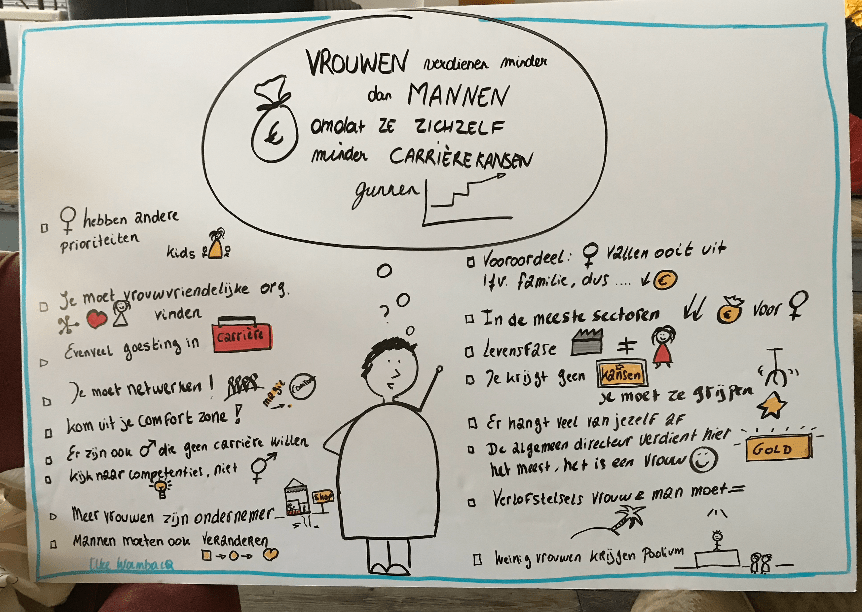 VROUWEN verdienen minder
dan MANNEN
€
omdat ZE ZICHZELF
minder CARRIÈREKANSEN
gunnen
♀ hebben andere
prioriteiten
kids
Je moet vrouwvriendelijke org.
vinden
Evenveel goesting in carrière
Je moet netwerken!
magic
comfort
kom uit je comfort zone!
Er zijn ook ♂ die geen carrière willen
kijk naar competenties, niet ⚥
Meer vrouwen zijn ondernemer
Shop
Mannen moeten ook veranderen
Elke Wambacq
?
Vooroordeel: ♀ vallen ooit uit
ifv. familie, dus .... ↓ €
In de meeste sectoren ↓↓ € voor ♀
Levensfase ≠
Je krijgt geen kansen
je moet ze grijpen
Er hangt veel van jezelf af
De algemeen directeur verdient hier
het meest, het is een vrouw
GOLD
Verlofstelsels vrouw & man moet =
Weinig vrouwen krijgen podium